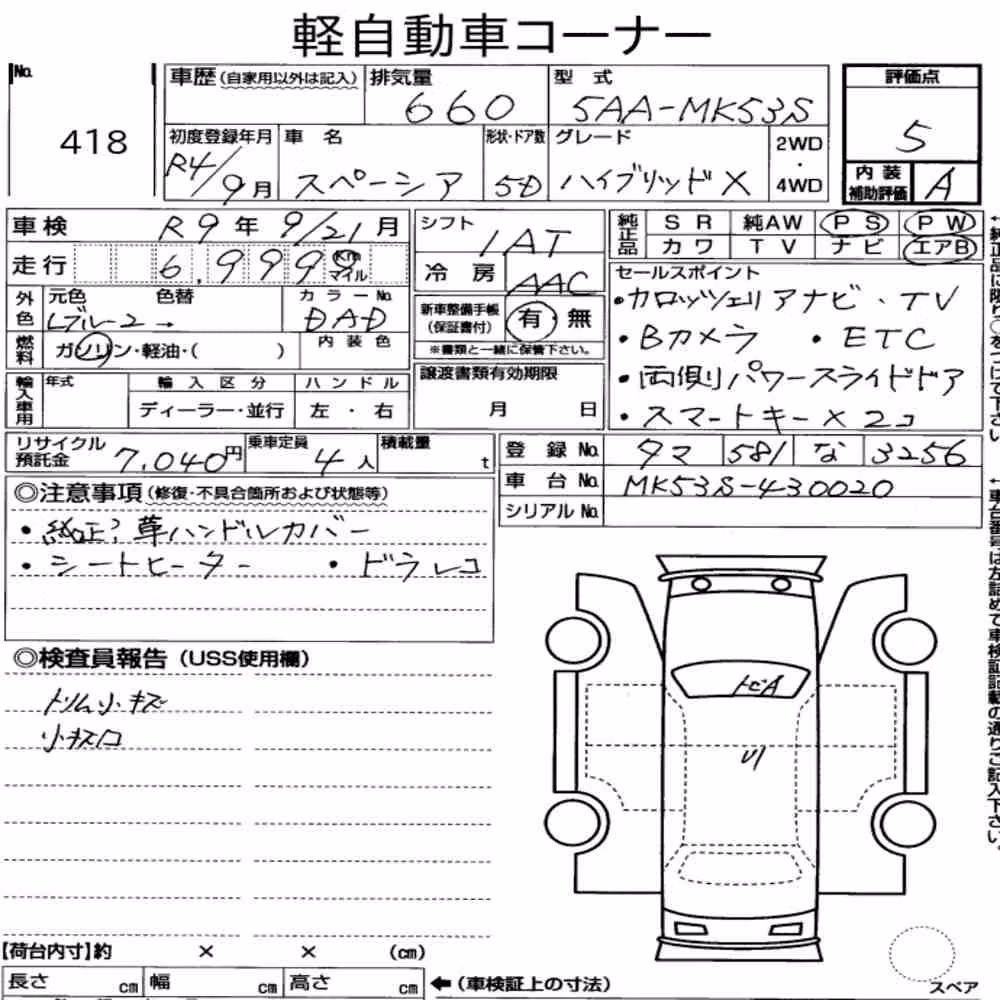 軽自動車コーナー
No.
418
車歴 (自家用以外は記入)
排気量
660
型式
5AA-MK53S
評価点
5
初度登録年月
R4/9月
車名
スペーシア
形状・ドア数
5D
グレード
ハイブリッドX
2WD
・
4WD
内装
補助評価
A
車検 R9年 9/21月
走行 6,999 Km
マイル
シフト
IAT
冷房
AAC
純正品
SR 純AW PS PW
カワ TV ナビ エアB
外色
元色 色替
ブルー2→
カラーNo.
DAD
内装色
燃料
ガソリン・軽油・( )
新車整備手帳
(保証書付)
有・無
※書類と一緒に保管下さい。
セールスポイント
・カロッツェリアナビ・TV
・Bカメラ ・ETC
・両側パワースライドドア
・スマートキー×2コ
輸入車用
年式
輸入区分
ディーラー・並行
ハンドル
左・右
譲渡書類有効期限
月 日
リサイクル
預託金
7,040円
乗車定員
4人
積載量
t
登録No. タマ 581 な 3256
車台No. MK53S-430020
シリアルNo.
◎注意事項 (修復・不具合箇所および状態等)
・純正? 革ハンドルカバー
・シートヒーター ・ドラレコ
◎検査員報告 (USS使用欄)
トリム小キズ
小キズ凹
トビA
リ
【荷台内寸】約 × × (cm)
長さ cm 幅 cm 高さ cm
←(車検証上の寸法)
スペア
←純正品に限り○をつけて下さい
←車台番号は左詰めで車検証記載の通りご記入下さい。